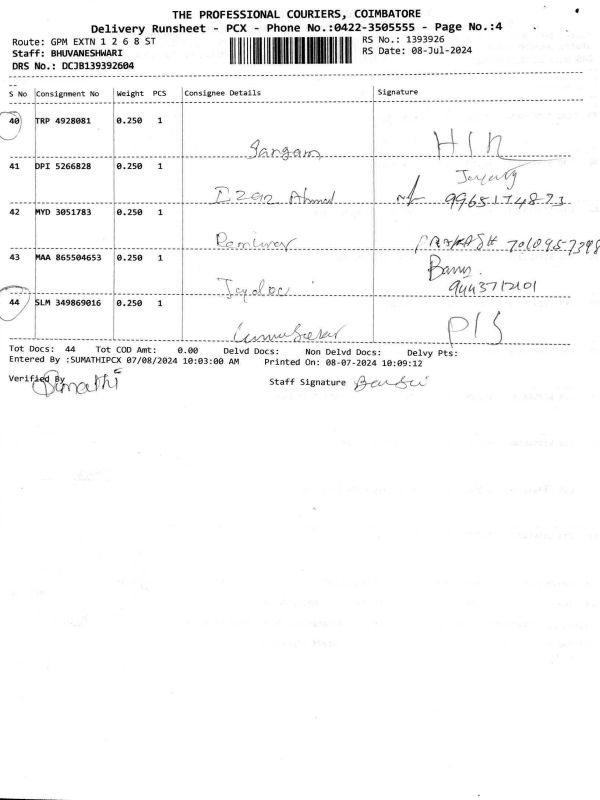 THE PROFESSIONAL COURIERS, COIMBATORE
Delivery Runsheet - PCX - Phone No.:0422-3505555 - Page No.:4
Route: GPM EXTN 1 2 6 8 ST
RS No.: 1393926
Staff: BHUVANESHWARI
RS Date: 08-Jul-2024
DRS No.: DCJB139392604
S No Consignment No Weight PCS Consignee Details Signature
40 TRP 4928081 0.250 1
Sangam
41 DPI 5266828 0.250 1
Ahmed 9965174873
42 MYD 3051783 0.250 1
PRAKASH
43 MAA 865504653 0.250 1
9443712101
44 SLM 349869016 0.250 1
Tot Docs: 44 Tot COD Amt: 0.00 Delvd Docs: Non Delvd Docs: Delvy Pts:
Entered By :SUMATHIPCX 07/08/2024 10:03:00 AM Printed On: 08-07-2024 10:09:12
Verified By Sumathi Staff Signature